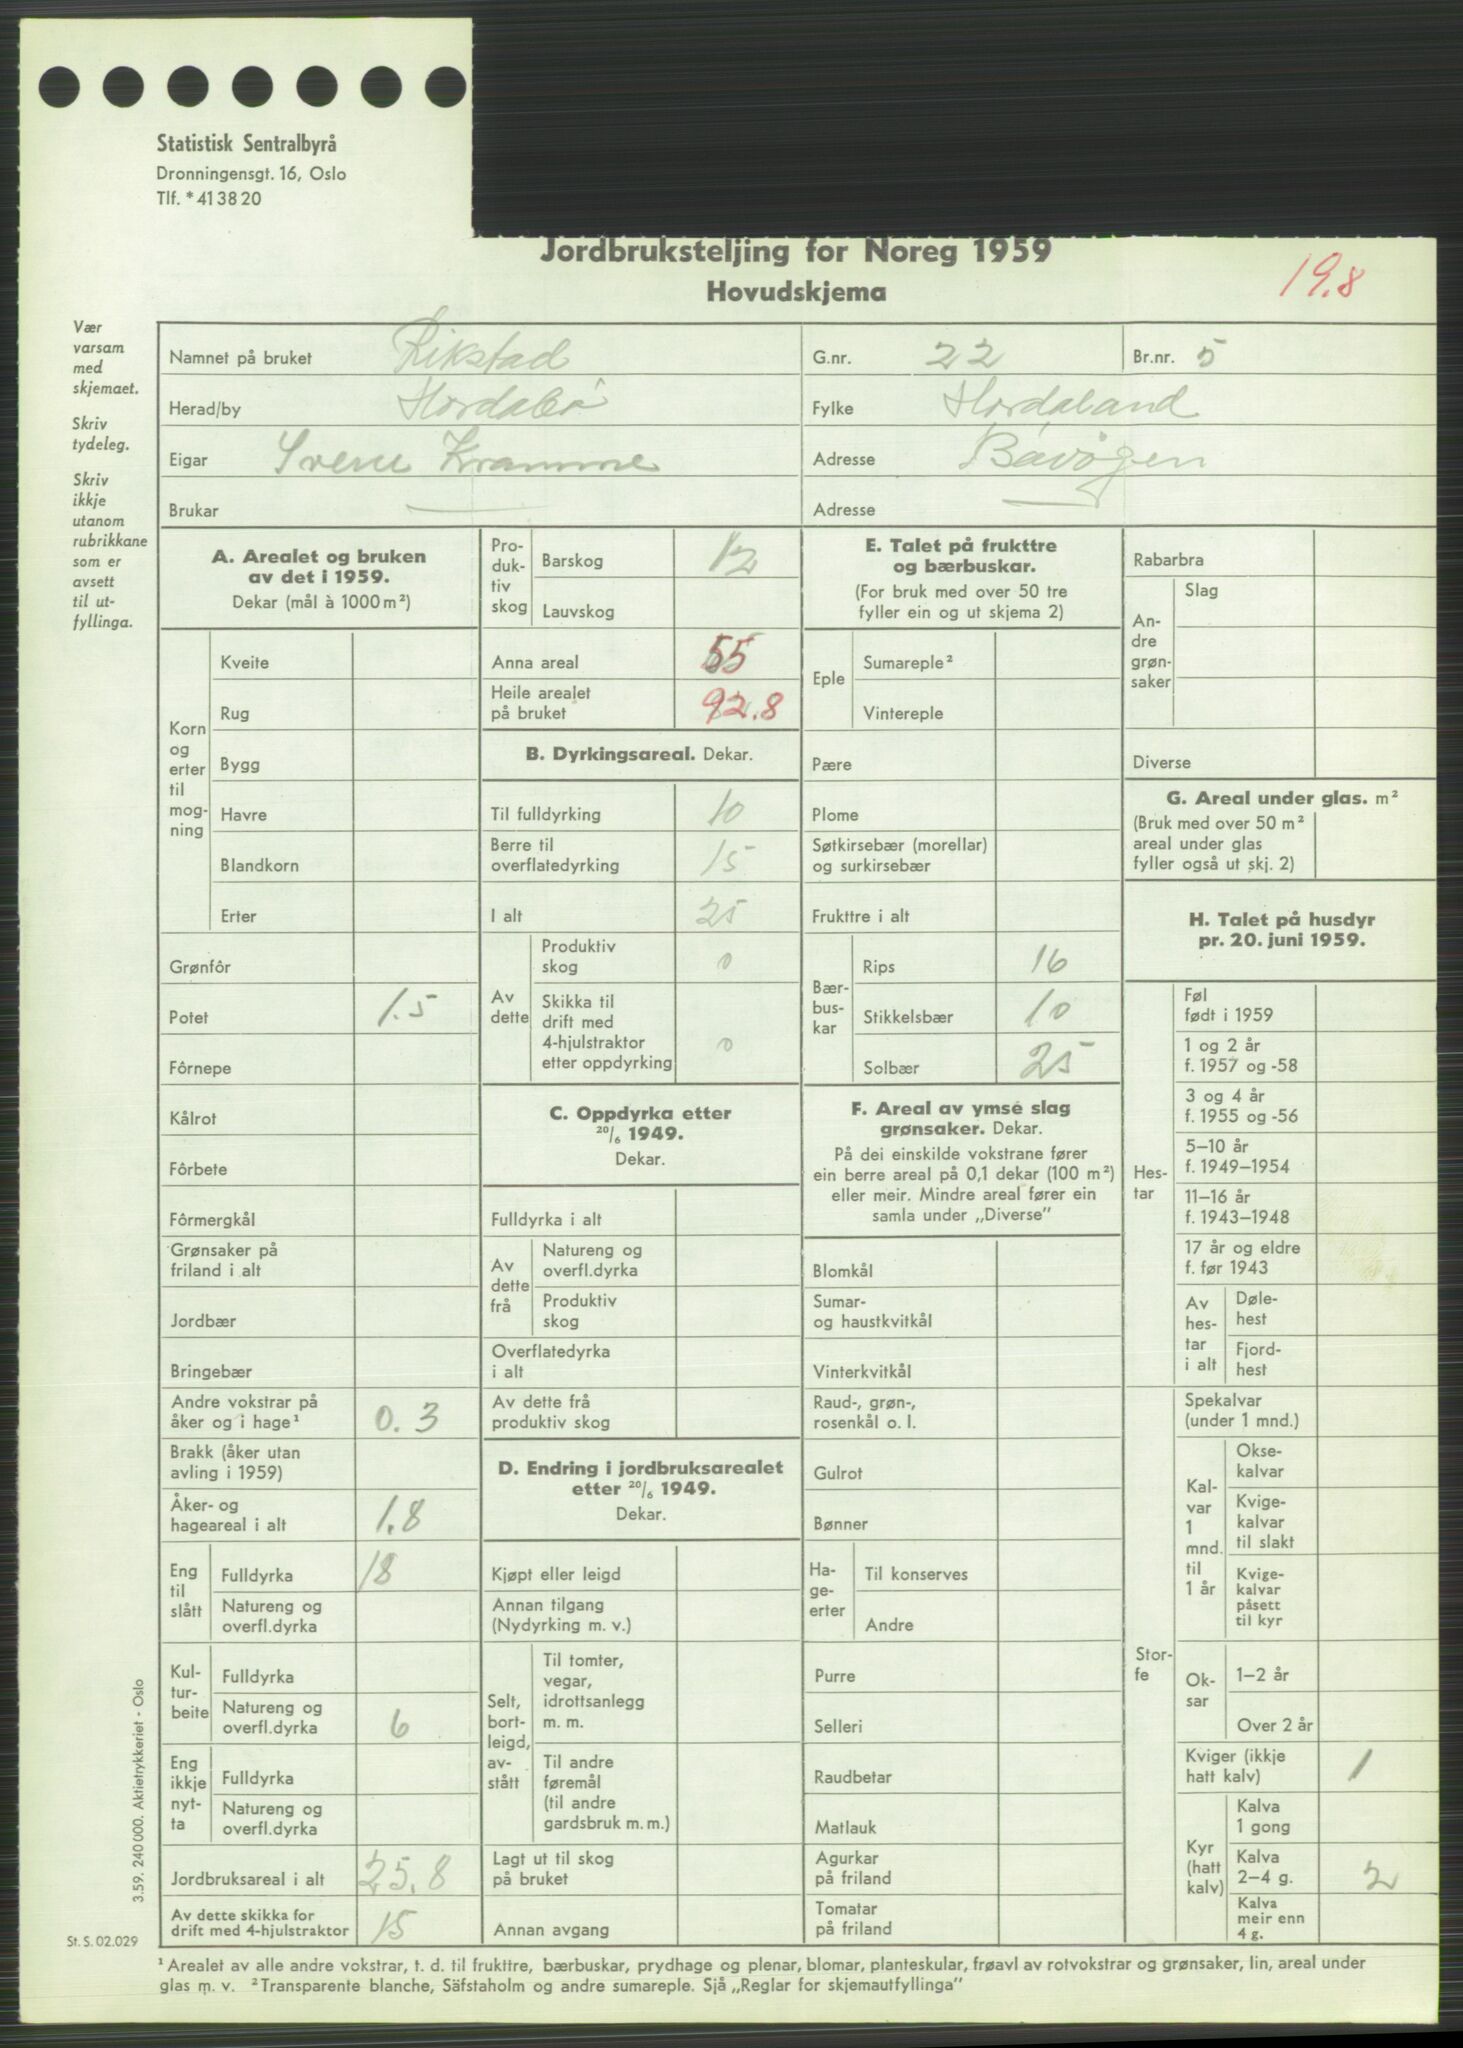 Statistisk Sentralbyrå
Dronningensgt. 16, Oslo
Tlf. *413820
Jordbruksteljing for Noreg 1959
Hovudskjema
19.8
Vær
varsam
med
skjemaet.
Skriv
tydeleg.
Skriv
ikkje
utanom
rubrikkane
som er
avsett
til ut-
fyllinga.
Namnet på bruket Rikstad G.nr. 22 Br.nr. 5
Herad/by Hordabø Fylke Hordaland
Eigar Sverre Kramme Adresse Bøvågen
Brukar — Adresse —
A. Arealet og bruken
av det i 1959.
Dekar (mål à 1000 m²)
Korn
og
erter
til
mog-
ning
Kveite
Rug
Bygg
Havre
Blandkorn
Erter
Grønfôr
Potet 1.5
Fôrnepe
Kålrot
Fôrbete
Fôrmergkål
Grønsaker på
friland i alt
Jordbær
Bringebær
Andre vokstrar på
åker og i hage¹ 0.3
Brakk (åker utan
avling i 1959)
Åker- og
hageareal i alt 1.8
Eng
til
slått
Fulldyrka 18
Natureng og
overfl.dyrka
Kul-
tur-
beite
Fulldyrka
Natureng og
overfl.dyrka 6
Eng
ikkje
nyt-
ta
Fulldyrka
Natureng og
overfl.dyrka
Jordbruksareal i alt 25.8
Av dette skikka for
drift med 4-hjulstraktor 15
Pro-
duk-
tiv
skog
Barskog 12
Lauvskog
Anna areal 55
Heile arealet
på bruket 92.8
B. Dyrkingsareal. Dekar.
Til fulldyrking 10
Berre til
overflatedyrking 15
I alt 25
Av
dette
Produktiv
skog 0
Skikka til
drift med
4-hjulstraktor
etter oppdyrking 0
C. Oppdyrka etter
20/6 1949.
Dekar.
Fulldyrka i alt
Av
dette
frå
Natureng og
overfl.dyrka
Produktiv
skog
Overflatedyrka
i alt
Av dette frå
produktiv skog
D. Endring i jordbruksarealet
etter 20/6 1949.
Dekar.
Kjøpt eller leigd
Annan tilgang
(Nydyrking m. v.)
Selt,
bort-
leigd,
av-
stått
Til tomter,
vegar,
idrottsanlegg
m. m.
Til andre
føremål
(til andre
gardsbruk m. m.)
Lagt ut til skog
på bruket
Annan avgang
E. Talet på frukttre
og bærbuskar.
(For bruk med over 50 tre
fyller ein og ut skjema 2)
Eple
Sumareple²
Vintereple
Pære
Plome
Søtkirsebær (morellar)
og surkirsebær
Frukttre i alt
Bær-
bus-
kar
Rips 16
Stikkelsbær 10
Solbær 25
F. Areal av ymse slag
grønsaker. Dekar.
På dei einskilde vokstrane fører
ein berre areal på 0,1 dekar (100 m²)
eller meir. Mindre areal fører ein
samla under „Diverse”
Blomkål
Sumar-
og haustkvitkål
Vinterkvitkål
Raud-, grøn-,
rosenkål o. l.
Gulrot
Bønner
Ha-
ge-
erter
Til konserves
Andre
Purre
Selleri
Raudbetar
Matlauk
Agurkar
på friland
Tomatar
på friland
Rabarbra
An-
dre
grøn-
saker
Slag
Diverse
G. Areal under glas. m²
(Bruk med over 50 m²
areal under glas
fyller også ut skj. 2)
H. Talet på husdyr
pr. 20. juni 1959.
Hes-
tar
Føl
født i 1959
1 og 2 år
f. 1957 og -58
3 og 4 år
f. 1955 og -56
5–10 år
f. 1949–1954
11–16 år
f. 1943–1948
17 år og eldre
f. før 1943
Av
hes-
tar
i alt
Døle-
hest
Fjord-
hest
Stor-
fe
Spekalvar
(under 1 mnd.)
Kal-
var
1
mnd.
til
1 år
Okse-
kalvar
Kvige-
kalvar
til slakt
Kvige-
kalvar
påsett
til kyr
Ok-
sar
1–2 år
Over 2 år
Kviger (ikkje
hatt kalv) 1
Kyr
(hatt
kalv)
Kalva
1 gong
Kalva
2–4 g. 2
Kalva
meir enn
4 g.
3.59. 240 000. Aktietrykkeriet - Oslo
St. S. 02.029
¹ Arealet av alle andre vokstrar, t. d. til frukttre, bærbuskar, prydhage og plenar, blomar, planteskular, frøavl av rotvokstrar og grønsaker, lin, areal under
glas m. v. ² Transparente blanche, Säfstaholm og andre sumareple. Sjå „Reglar for skjemautfyllinga”